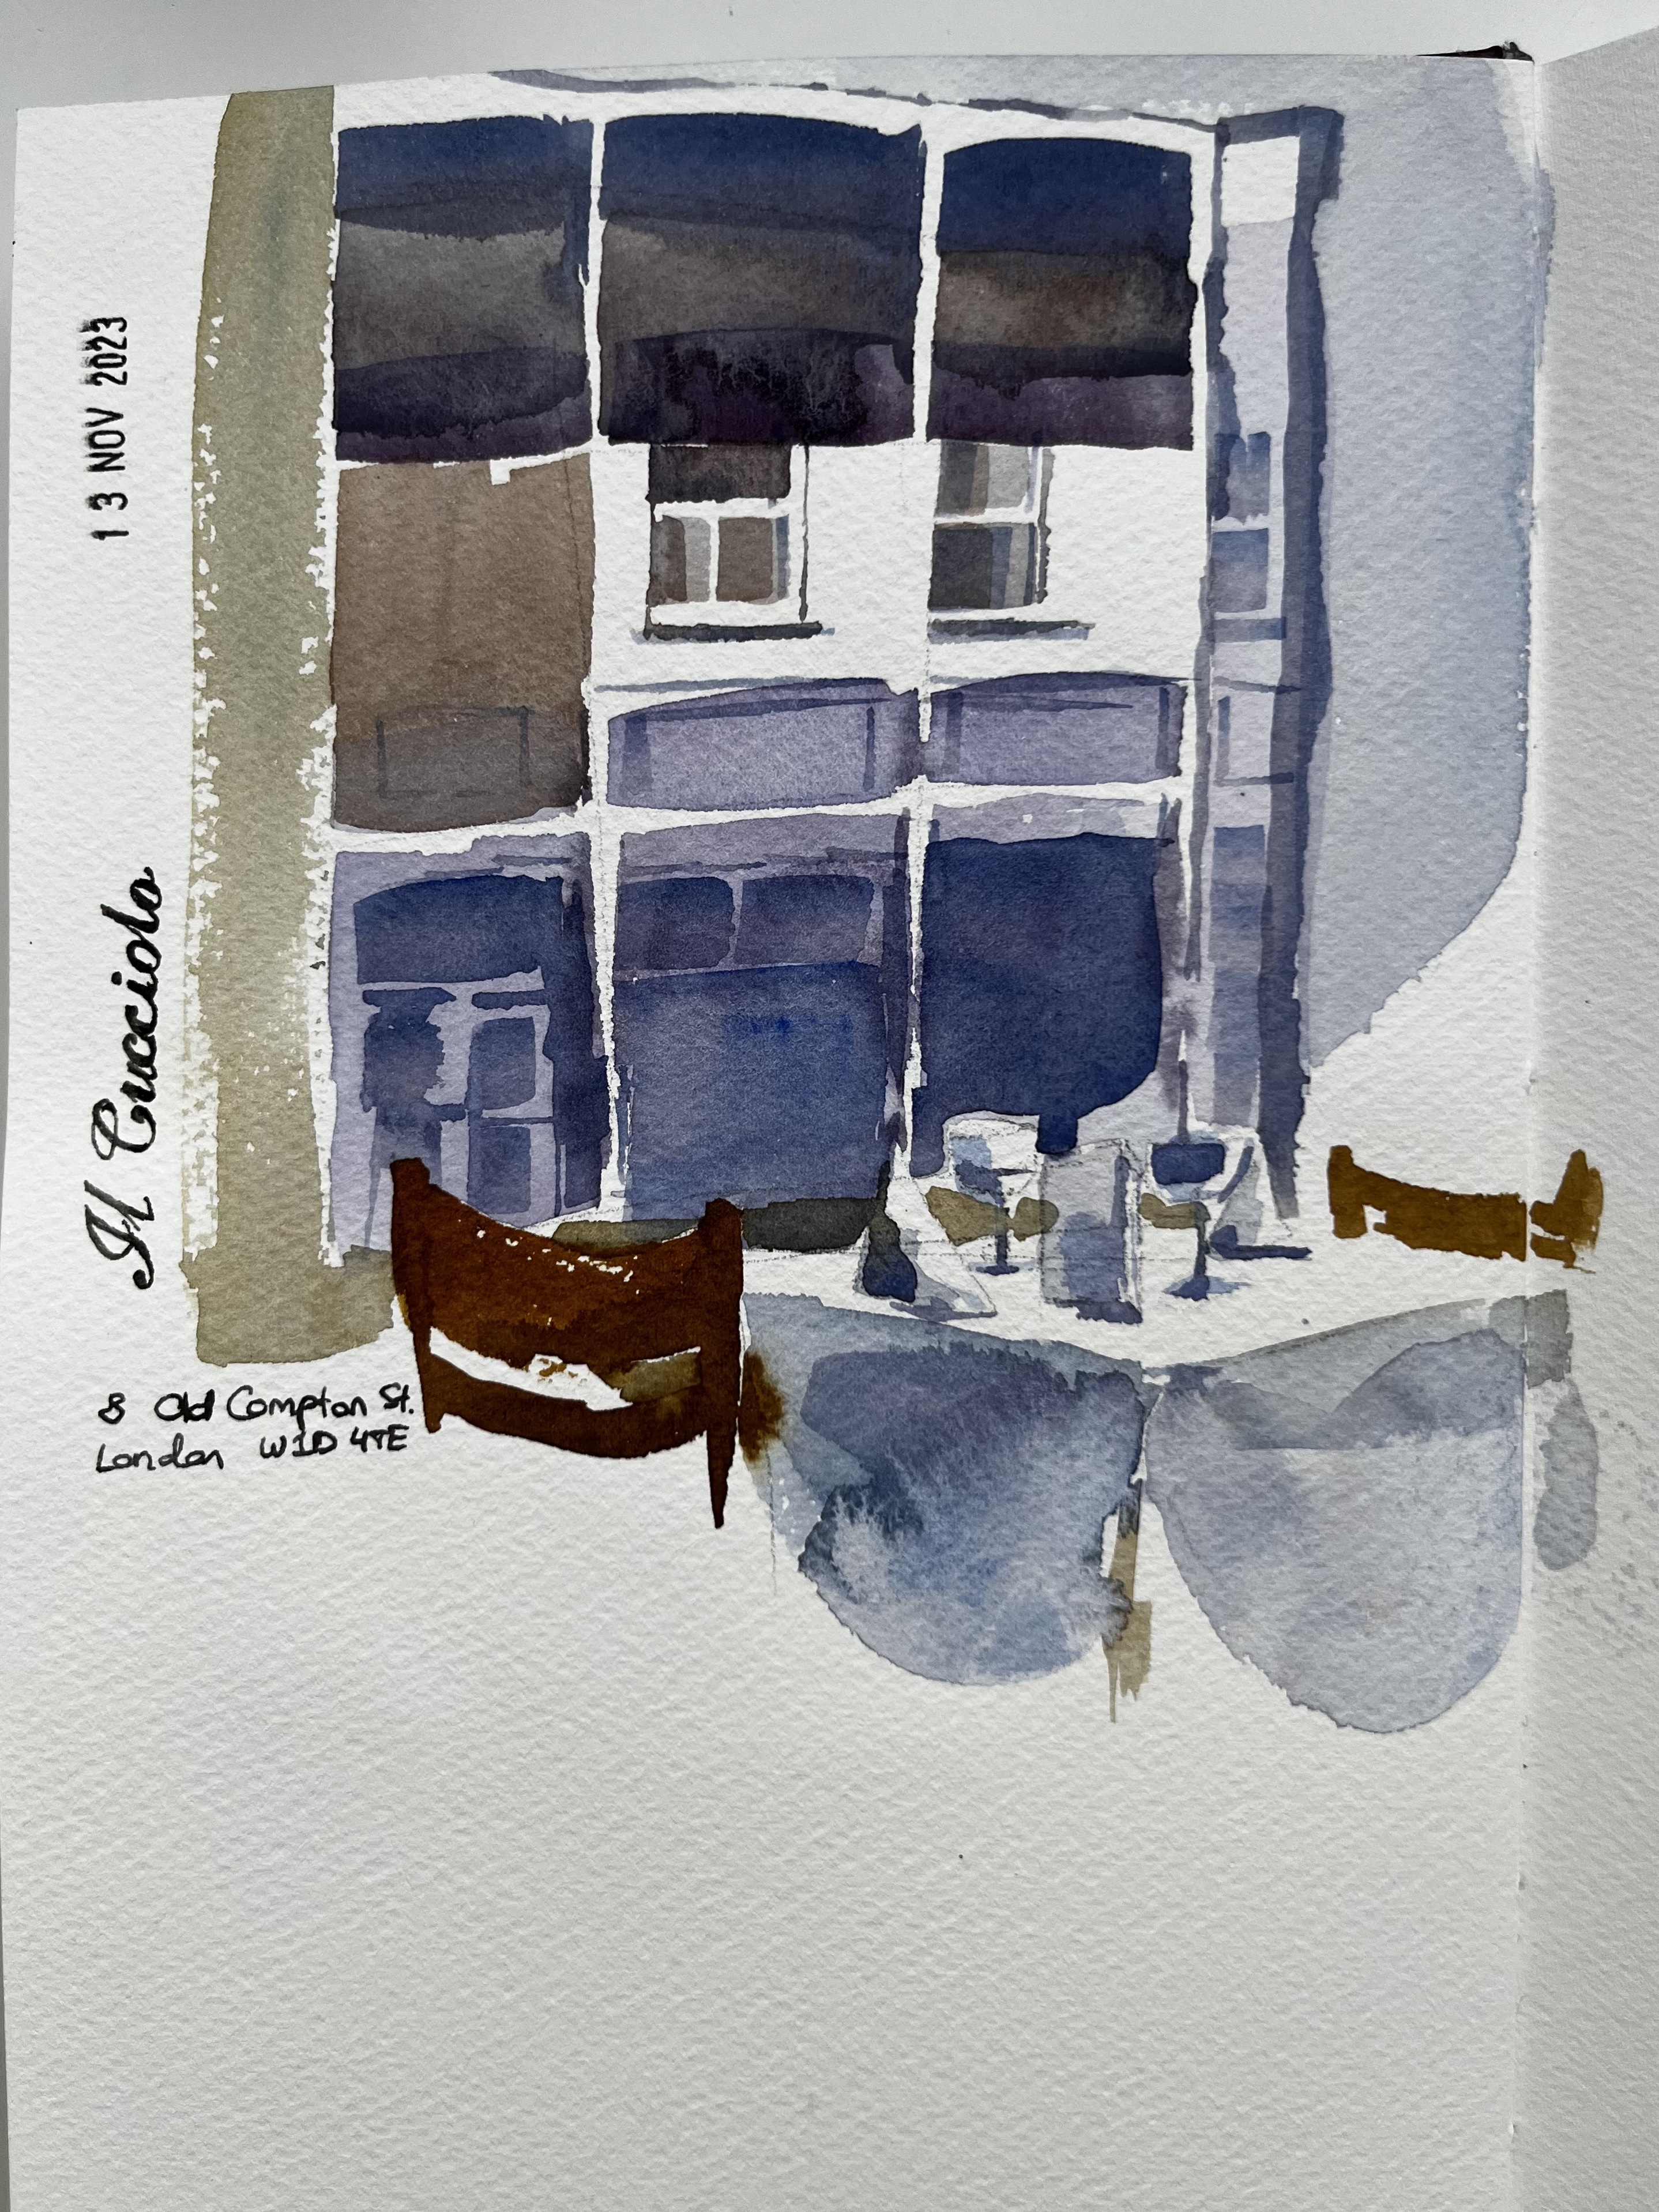 13 NOV 2023
Il Cucciolo
8 Old Compton St.
London W1D 4TE